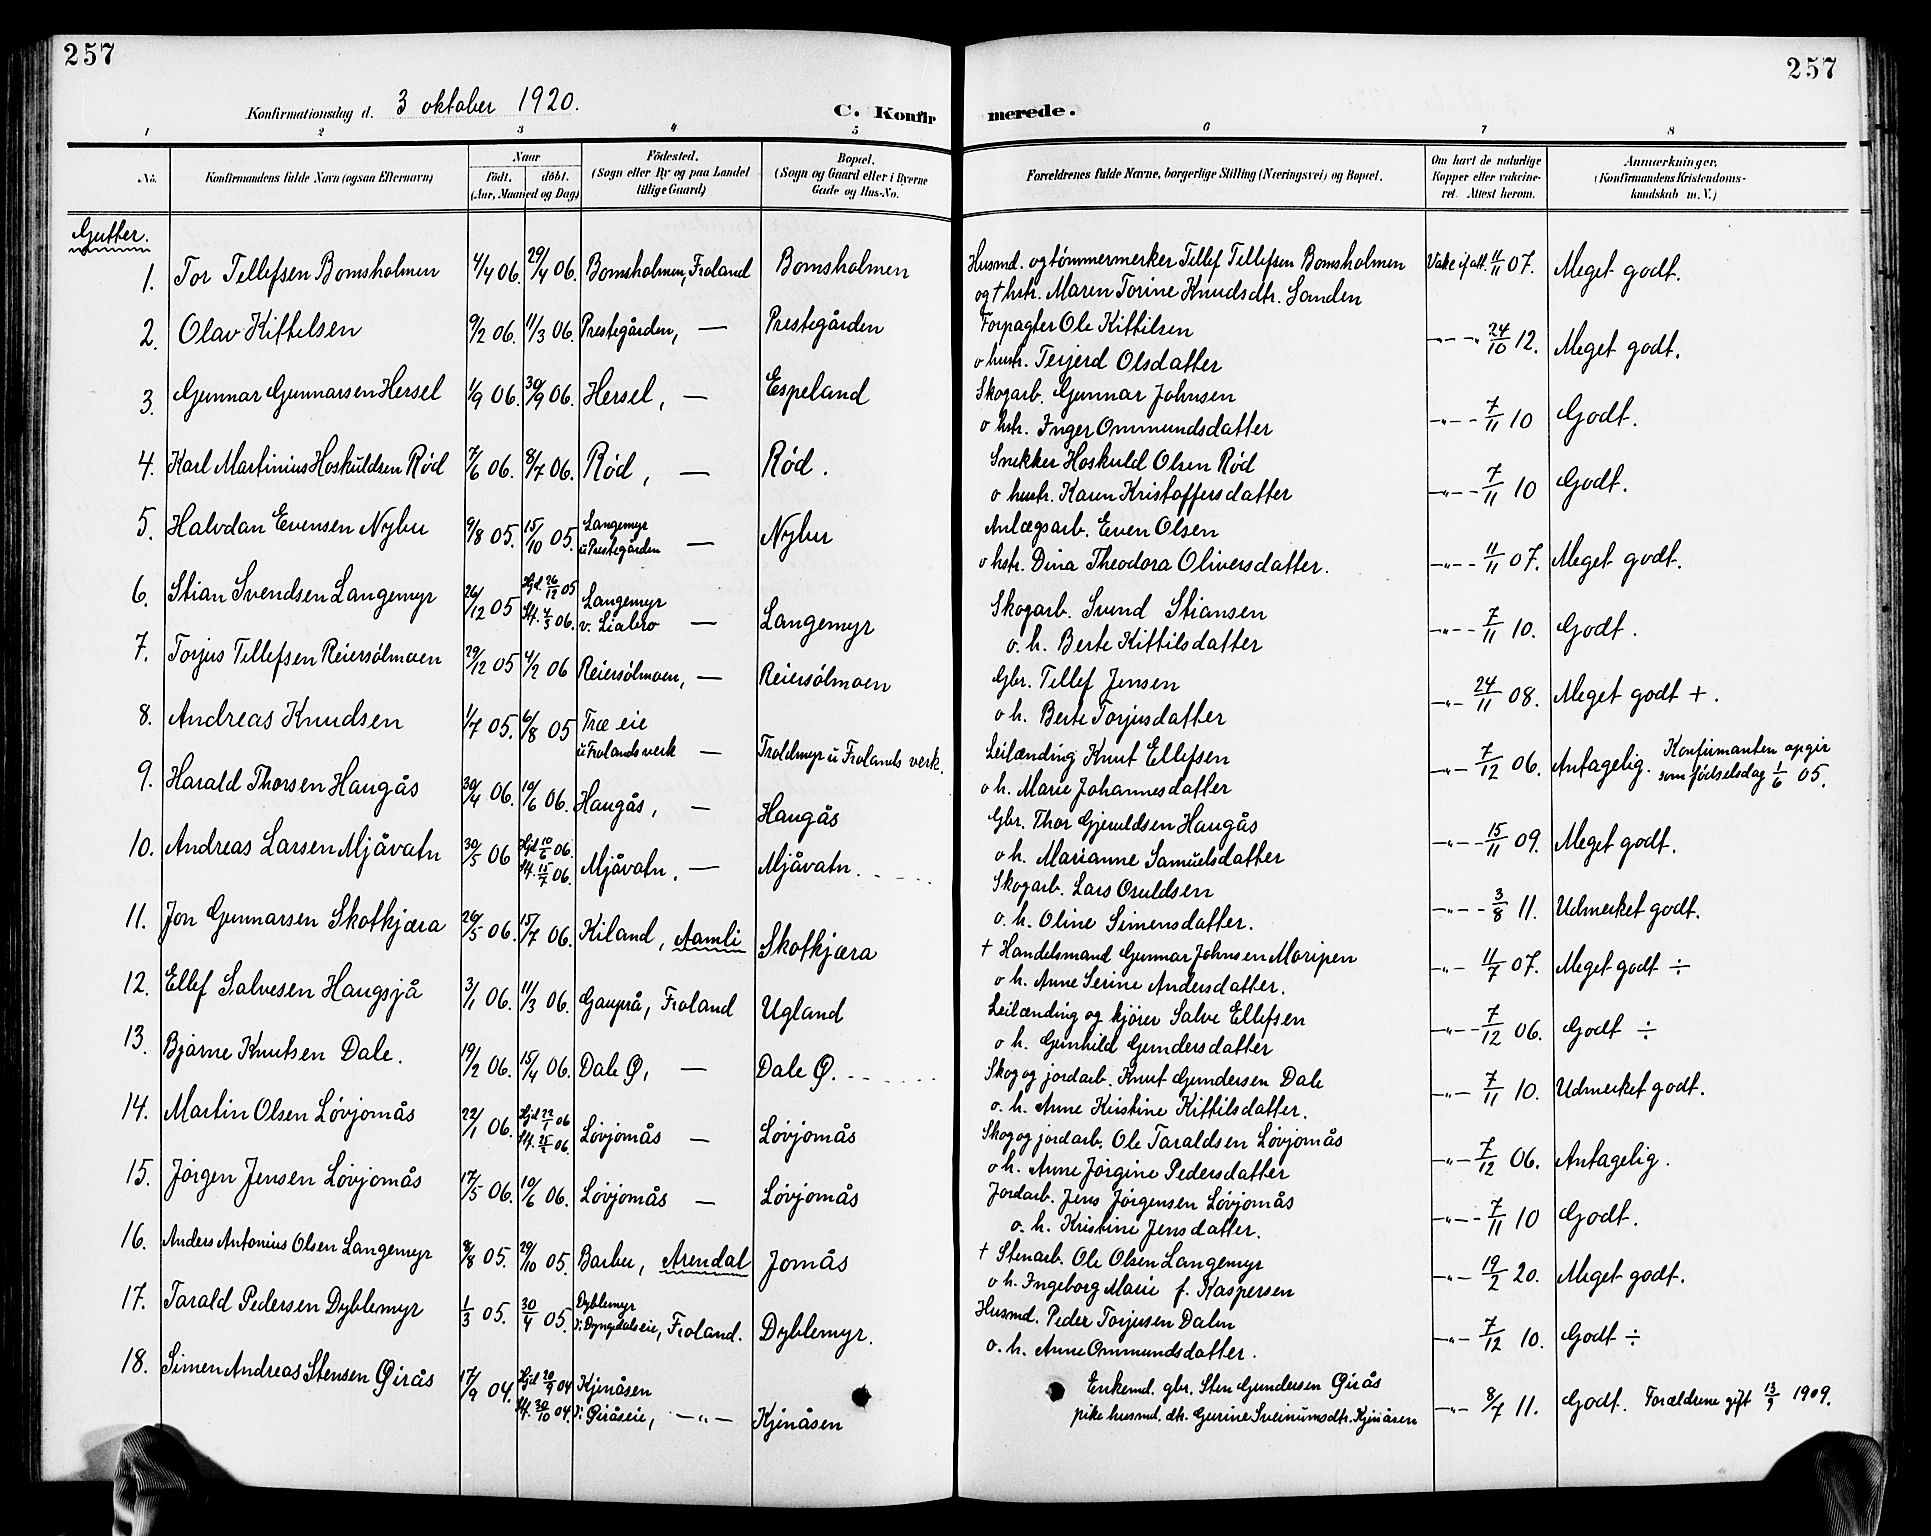 257
257
Konfirmationsdag d. 3 oktober 1920.
C. Konfirmerede.
1 2 3 4 5 6 7 8
No.
Konfirmandens fulde Navn (ogsaa Efternavn)
Naar
født. døbt.
(Aar, Maaned og Dag)
Födested.
(Sogn eller By og paa Landet
tillige Gaard)
Bopæl.
(Sogn og Gaard eller i Byerne
Gade og Hus-No.
Forældrenes fulde Navne, borgerlige Stilling (Næringsvei) og Bopæl.
Om havt de naturlige
Kopper eller vakcine-
ret. Attest herom.
Anmærkninger.
(Konfirmandens Kristendoms-
kundskab m. V.)
Gutter.
1. Tor Tellefsen Bomsholmen 4/4 06. 29/4 06. Bomsholmen, Froland Bomsholmen Husmd. og tømmermerker Tellef Tellefsen Bomsholmen Vakc. if. att. 11/11 07. Meget godt.
og † hstr. Maren Torine Knudsdtr. Landen
2. Olav Kittelsen 9/2 06. 11/3 06. Prestegården, — Prestegården Forpagter Ole Kittilsen —"— 24/10 12. Meget godt.
o hustr. Terjerd Olsdatter
3. Gunnar Gunnarsen Hersel 1/9 06. 30/9 06. Hersel, — Espeland Skogarb. Gunnar Johnsen —"— 7/11 10 Godt.
o hstr. Inger Ommundsdatter
4. Karl Martinius Hoskuldsen Rød 7/6 06. 8/7 06. Rød, — Rød. Snekker Hoskuld Olsen Rød —"— 7/11 10 Godt.
o hustr. Karen Kristoffersdatter
5. Halvdan Evensen Nybu 9/8 05. 15/10 05. Langemyr u Prestegården — Nybu Anlægsarb. Even Olsen —"— 11/11 07. Meget godt.
o hstr. Dina Theodora Oliversdatter.
6. Stian Svendsen Langemyr 26/12 05 Hjd. 26/12 05 St. 4/3 06. Langemyr v. Liabro — Langemyr Skogarb. Svend Stiansen —"— 7/11 10. Godt.
o. h. Berte Kittilsdatter
7. Torjus Tellefsen Reiersølmoen 29/12 05 4/2 06 Reiersølmoen, — Reiersølmoen Gbr. Tellef Jensen —"— 24/11 08. Meget godt +.
o h. Berte Torjusdatter
8. Andreas Knudsen 1/7 05. 6/8 05 Træ eie u Frolands verk — Troldmyr u Frolands verk. Leilænding Knut Ellefsen —"— 7/12 06. Antagelig. Konfirmanten opgir
som fødselsdag 1/6 05.
o h. Marie Johannesdatter
9. Harald Thorsen Haugås 30/4 06. 10/6 06. Haugås, — Haugås Gbr. Thor Gjeruldsen Haugås —"— 15/11 09. Meget godt.
o h. Marianne Samuelsdatter
10. Andreas Larsen Mjåvatn 30/5 06 Hjd 10/6 06. St. 15/7 06. Mjåvatn. — Mjåvatn. Skogarb. Lars Osuldsen —"— 3/8 11. Udmerket godt.
o. h. Oline Simensdatter.
11. Jon Gunnarsen Skotkjæra 26/5 06. 15/7 06. Kiland, Aamli Skotkjæra † Handelsmand Gunnar Johnsen Moripen —"— 11/7 07. Meget godt ÷
o h. Anne Serine Andersdatter.
12. Ellef Salvesen Haugsjå 3/1 06. 11/3 06. Gauprå, Froland Ugland Leilænding og kjører Salve Ellefsen —"— 7/12 06. Godt ÷
o h. Gunhild Gundersdatter
13. Bjarne Knutsen Dale. 19/2 06. 15/4 06. Dale Ø, — Dale Ø. Skog og jordarb. Knut Gundersen Dale —"— 7/11 10. Udmerket godt.
o. h. Anne Kristine Kittilsdatter.
14. Martin Olsen Løvjomås 22/1 06. Hjd 22/1 06 St. 25/2 06. Løvjomås — Løvjomås Skog og jordarb. Ole Taraldsen Løvjomås —"— 7/12 06. Antagelig.
o h. Anne Jørgine Pedersdatter
15. Jørgen Jensen Løvjomås 17/5 06. 10/6 06. Løvjomås — Løvjomås Jordarb. Jens Jørgensen Løvjomås —"— 7/11 10 Godt.
o. h. Kristine Jensdatter.
16. Anders Antonius Olsen Langemyr 8/8 05. 29/10 05. Barbu, Arendal Jomås † Stenarb. Ole Olsen Langemyr —"— 19/2 20. Meget godt.
o h. Ingeborg Marie f. Kaspersen
17. Tarald Pedersen Dyblemyr 1/3 05. 30/4 05. Dyblemyr i Dyngdalseie, Froland. Dyblemyr. Husmd. Peder Torjusen Dalen —"— 7/12 10. Godt ÷
o. h. Anne Ommundsdatter.
18. Simen Andreas Stensen Øirås 17/9 04. Hjd 20/9 04 St. 30/10 04. Kjenåsen i Øiråseie, —"— Kjenåsen Enkemd. gbr. Sten Gundersen Øirås —"— 8/7 11. Godt. Forældrene gift 13/9 1909.
pike husmd. dtr. Gurine Sveinumsdtr. Kjenåsen